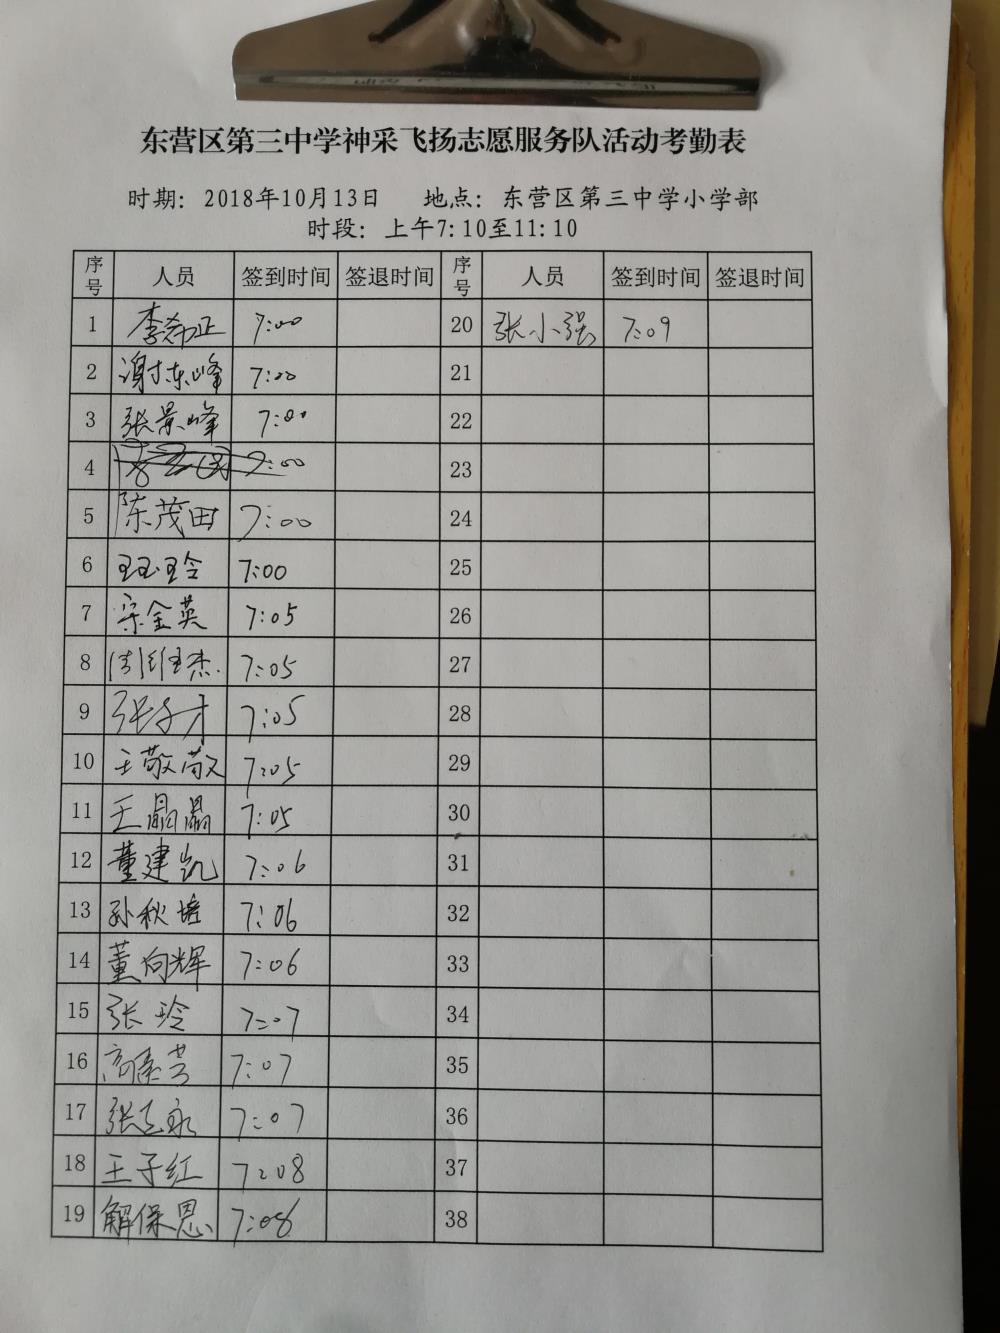 东营区第三中学神采飞扬志愿服务队活动考勤表
时期：2018年10月13日 地点：东营区第三中学小学部
时段：上午7:10至11:10
序号 人员 签到时间 签退时间 序号 人员 签到时间 签退时间
1 李希正 7:00 20 张小强 7:09
2 谢东峰 7:00 21
3 张景峰 7:00 22
4 7:00 23
5 陈茂田 7:00 24
6 王玉玲 7:00 25
7 宋金英 7:05 26
8 7:05 27
9 张子才 7:05 28
10 王敬敬 7:05 29
11 王晶晶 7:05 30
12 董建凯 7:06 31
13 孙秋培 7:06 32
14 董向辉 7:06 33
15 张玲 7:07 34
16 7:07 35
17 张志永 7:07 36
18 王子红 7:08 37
19 解保恩 7:08 38